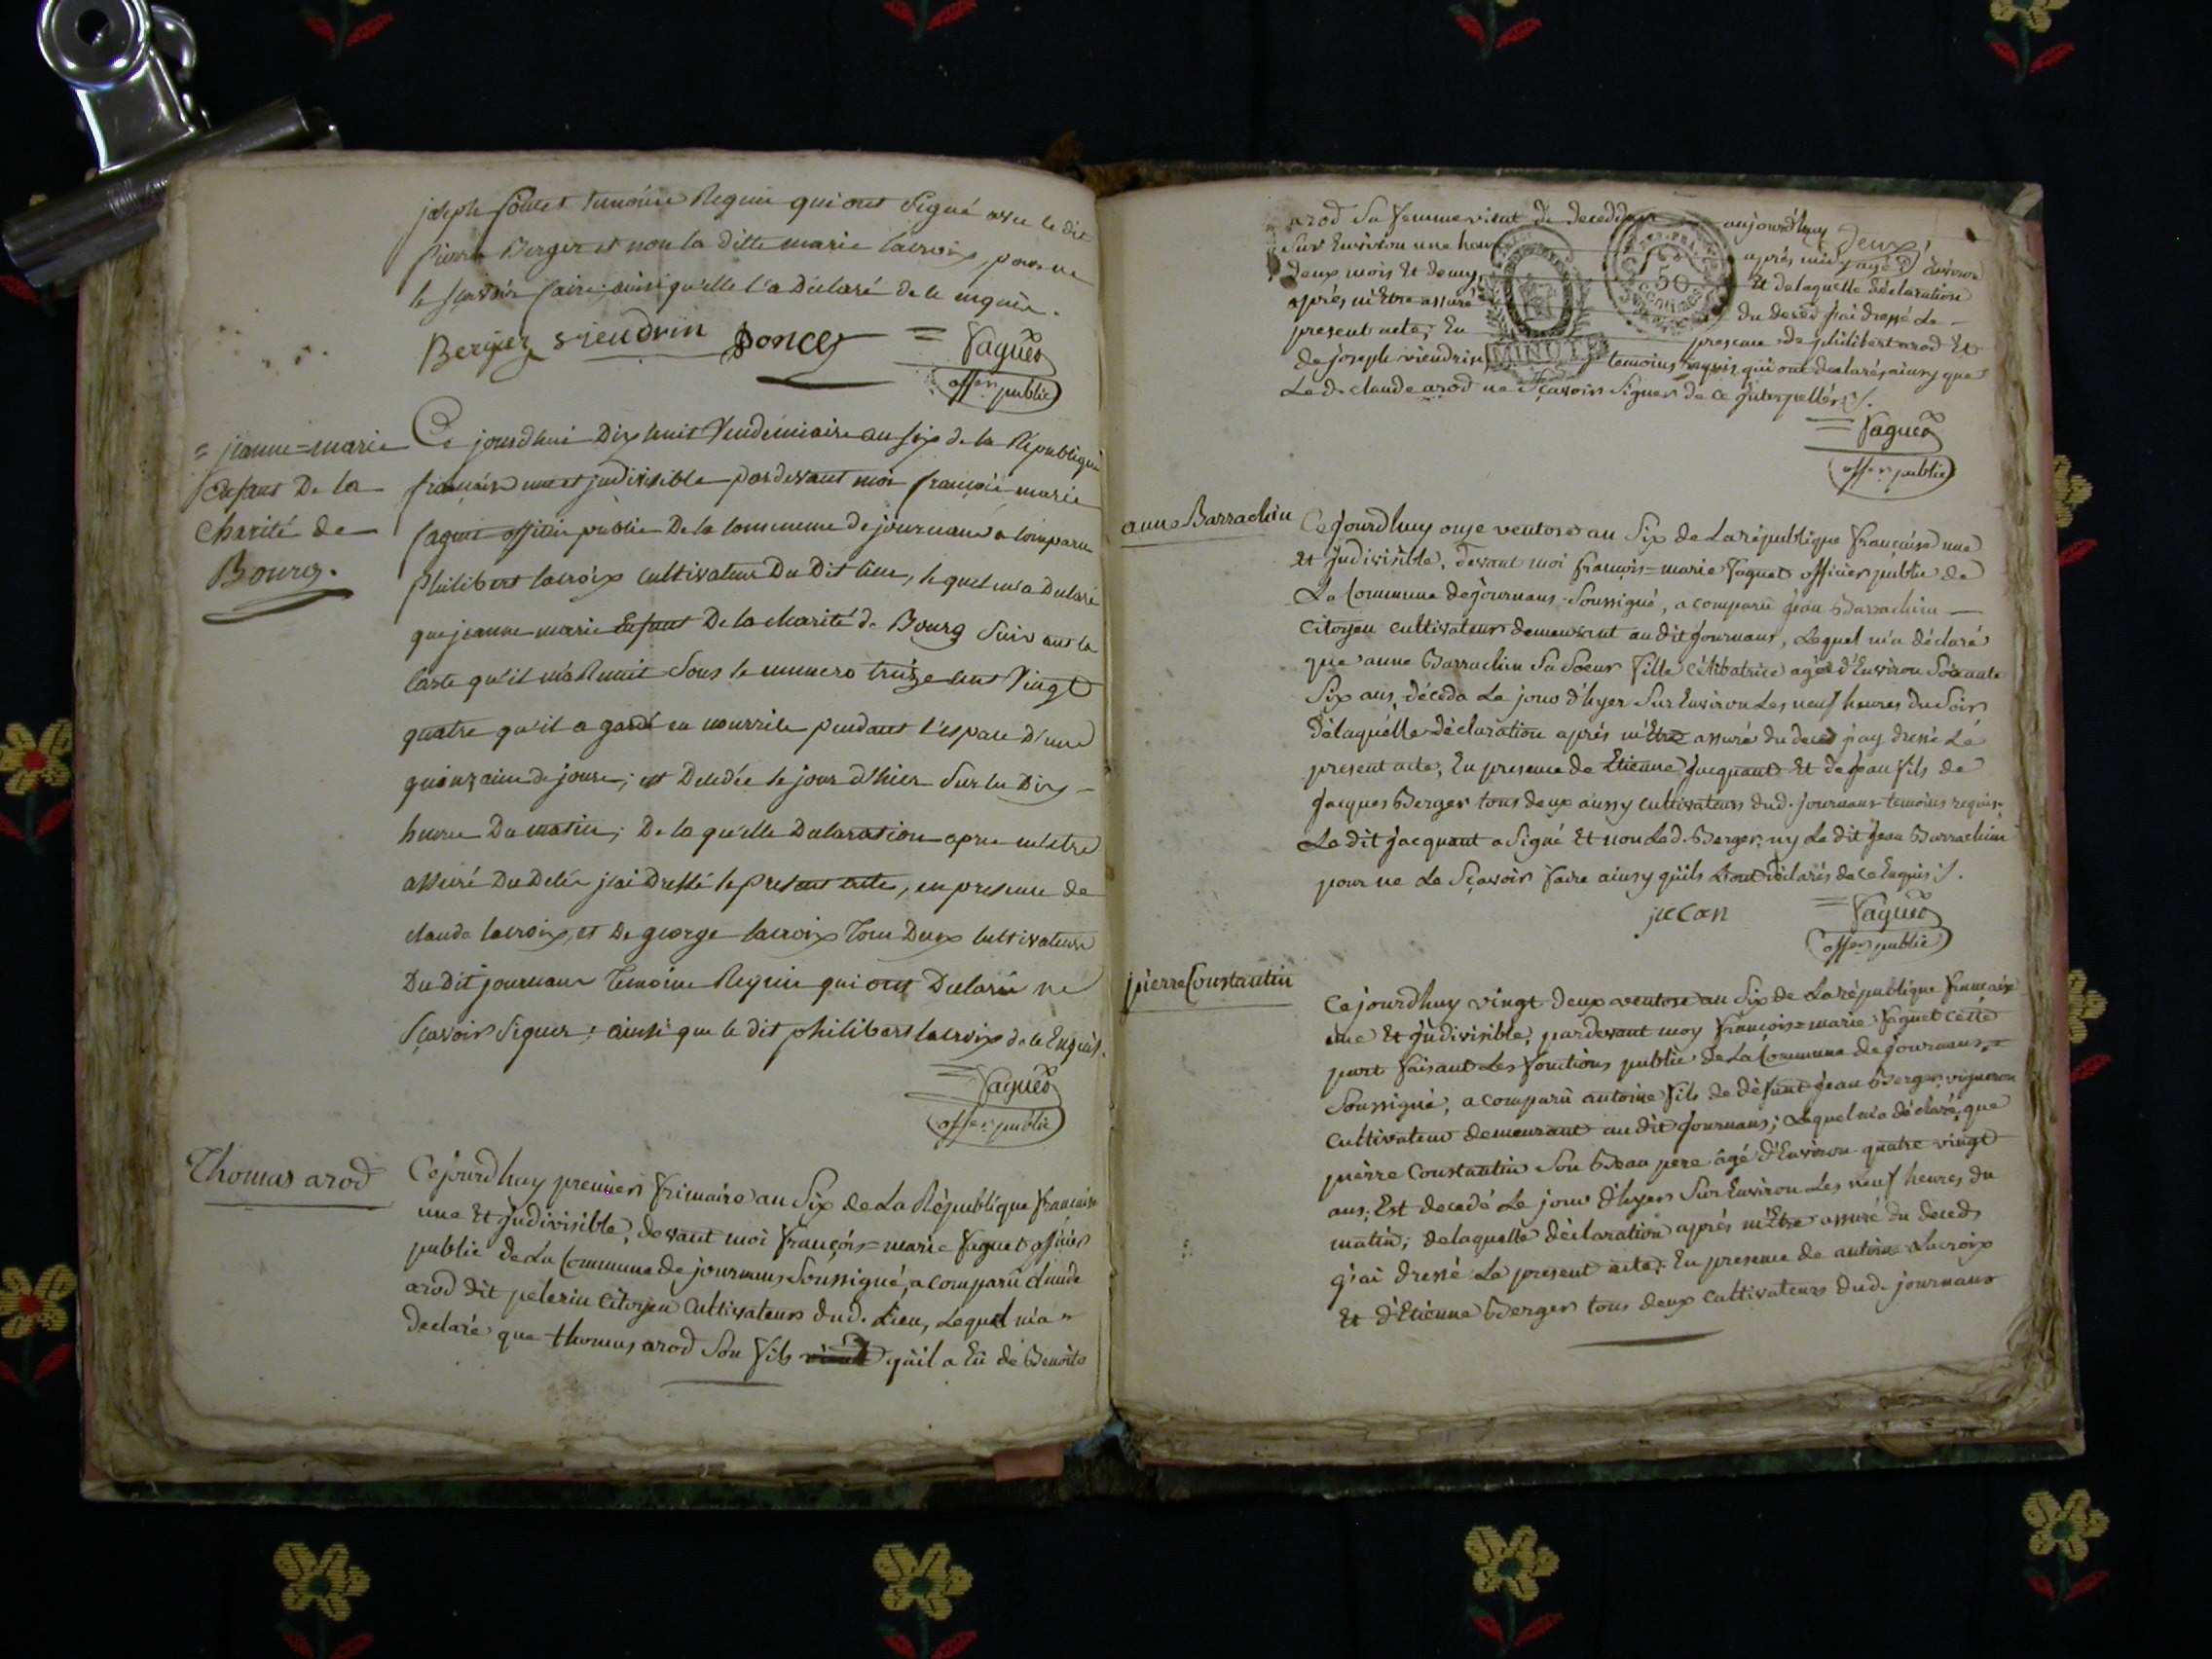 joseph temoins Requis qui ont Signé avec le dit
pierre Berger et non la ditte marie lacroix, pour ne
le sçavoir faire ainsi qu'elle l'a Déclaré de ce enquise.
Berger vieudrin poncet = Faguet
offer public
= jeanne=marie
Enfant De la
Charité de
Bourg.
Ce jourdhui Dix huit Vendemiaire an six de la Republique
francaise une et indivisible pardevant moi françois marie
faguet officier public De la commune de journans a comparu
philibert lacroix cultivateur Du Dit lieu, lequel m'a Declaré
que jeanne marie Enfant De la charité de Bourg Suivant la
carte qu'il m'a Remit Sous le numero treize cent Vingt
quatre qu'il a gardé en nourrile pendant l'espace D'une
quinzaine de jours; est Decedée le jour d'hier Sur les Dix
heures Du matin; De laquelle Declaration apres m'etre
assuré Du Deces j'ai Dressé le present acte, en presence de
claude lacroix, et De george lacroix Tous Deux cultivateurs
Du Dit journans Temoins Requis qui ont Declaré ne
Sçavoir Signer; ainsi que le dit philibert lacroix de ce Enquis.
= Faguet
offer public
Thomas arod
Cejourdhuy premier frimaire an Six de La République francaise
une Et Indivisible, devant moi françois=marie faguet officier
public de La Commune de journans Soussigné, a comparû claude
arod dit pelerin Citoyen Cultivateur dud. Lieu, Lequel m'a
declaré que thomas arod Son fils qu'il a Eû de Benoite
arod Sa femme vient de decedder aujourd'huy
Sur Environ une heure après midy agé d'Environ
deux mois Et demy, Et delaquelle déclaration
après m'Etre assuré du deced j'ai dressé Le
present acte, En presence de philibert arod Et
de joseph viendrin temoins requis qui ont declarés ainsy que
Led. claude arod ne Sçavoir Signer de ce Interpellés ./.
MINUTE
50
= Faguet
offer public
anne Barrachin
Cejourdhuy onze ventose an Six de La république française une
et Indivisible, devant moi françois=marie faguet officier public de
La Commune de journans Soussigné, a comparû jean Barrachin
Citoyen cultivateur demeurant au dit journans, Lequel m'a déclaré
que anne Barrachin Sa Soeur fille célibatrice agée d'Environ Soixante
Six ans, décéda Le jour d'hyer Sur Environ Les neuf heures du Soir
délaquelle déclaration après m'Etre assuré du deced j'ay dressé Le
present acte, En presence de Etienne Jacquant Et de jean fils de
Jacques Berger tous deux aussy cultivateurs dud. journans temoins requis
Le dit jacquant a Signé Et non Led. Berger, ny Le dit jean Barrachin
pour ne Le Sçavoir faire ainsy qu'ils L'ont déclarés de ce Enquis ./.
jacan = Faguet
offer public
pierre Constantin
Cejourdhuy vingt deux ventose an Six de La république francaise
une Et Indivisible, pardevant moy françois=marie faguet
faisant Les fonctions public de La Commune de journans
Soussigné, a comparû antoine fils de défunt jean Berger vigneron
Cultivateur demeurant au dit journans; Lequel m'a déclaré, que
pierre Constantin Son Beau pere âgé d'Environ quatre vingt
ans; Est decedé Le jour d'hyer Sur Environ Les neuf heures du
matin; delaquelle déclaration après m'Etre assuré du deced
j'ai dressé Le present acte; En presence de antoine Lacroix
Et d'Etienne Berger tous deux cultivateurs dud. journans